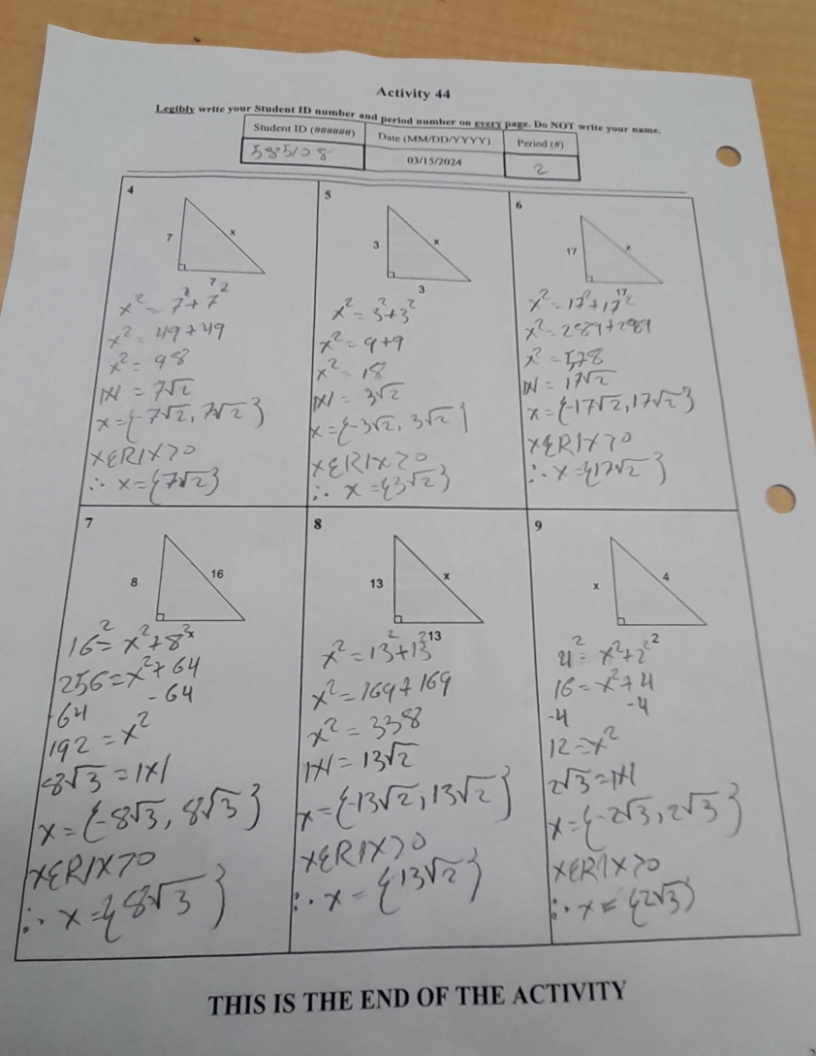 Activity 44
Legibly write your Student ID number and period number on every page. Do NOT write your name.
Student ID (######) Date (MM/DD/YYYY) Period (#)
585108 03/15/2024 2
4
7
x
7
x² = 7² + 7²
x² = 49 + 49
x² = 98
|x| = 7√2
x = {-7√2, 7√2}
x∈R|x>0
∴ x = {7√2}
5
3
x
3
x² = 3² + 3²
x² = 9 + 9
x² = 18
|x| = 3√2
x = {-3√2, 3√2}
x∈R|x>0
∴ x = {3√2}
6
17
x
17
x² = 17² + 17²
x² = 289 + 289
x² = 578
|x| = 17√2
x = {-17√2, 17√2}
x∈R|x>0
∴ x = {17√2}
7
8
16
x
16² = x² + 8²
256 = x² + 64
-64 -64
192 = x²
8√3 = |x|
x = {-8√3, 8√3}
x∈R|x>0
∴ x = {8√3}
8
13
x
13
x² = 13² + 13²
x² = 169 + 169
x² = 338
|x| = 13√2
x = {-13√2, 13√2}
x∈R|x>0
∴ x = {13√2}
9
x
4
2
4² = x² + 2²
16 = x² + 4
-4 -4
12 = x²
2√3 = |x|
x = {-2√3, 2√3}
x∈R|x>0
∴ x = {2√3}
THIS IS THE END OF THE ACTIVITY